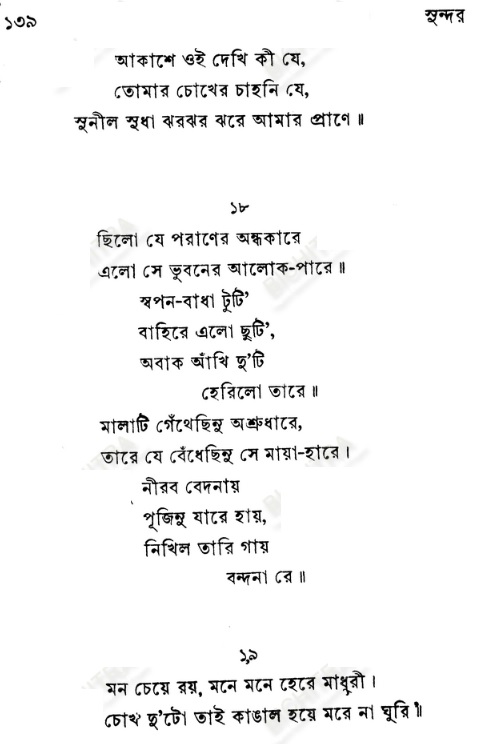 ১৩৯
সুন্দর
আকাশে ওই দেখি কী যে,
তোমার চোখের চাহনি যে,
সুনীল সুধা ঝরঝর ঝরে আমার প্রাণে ॥
১৮
ছিলো যে পরাণের অন্ধকারে
এলো সে ভুবনের আলোক-পারে ॥
স্বপন-বাধা টুটি’
বাহিরে এলো ছুটি’,
অবাক আঁখি দু’টি
হেরিলো তারে ॥
মালাটি গেঁথেছিনু অশ্রুধারে,
তারে যে বেঁধেছিনু সে মায়া-হারে ।
নীরব বেদনায়
পূজিনু যারে হায়,
নিখিল তারি গায়
বন্দনা রে ॥
১৯
মন চেয়ে রয়, মনে মনে হেরে মাধুরী ।
চোখ দু’টো তাই কাঙাল হয়ে মরে না ঘুরি ॥